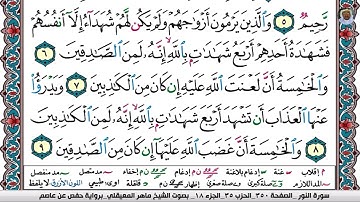 رَّحِيمٌ ٥ وَالَّذِينَ يَرْمُونَ أَزْوَاجَهُمْ وَلَمْ يَكُن لَّهُمْ شُهَدَاءُ إِلَّا أَنفُسُهُمْ
فَشَهَادَةُ أَحَدِهِمْ أَرْبَعُ شَهَادَاتٍ بِاللَّهِ إِنَّهُ لَمِنَ الصَّادِقِينَ ٦
وَالْخَامِسَةُ أَنَّ لَعْنَتَ اللَّهِ عَلَيْهِ إِن كَانَ مِنَ الْكَاذِبِينَ ٧ وَيَدْرَؤُا
عَنْهَا الْعَذَابَ أَن تَشْهَدَ أَرْبَعَ شَهَادَاتٍ بِاللَّهِ إِنَّهُ لَمِنَ الْكَاذِبِينَ
٨ وَالْخَامِسَةَ أَنَّ غَضَبَ اللَّهِ عَلَيْهَا إِن كَانَ مِنَ الصَّادِقِينَ ٩
سورة النور . الصفحة ٣٥٠ . الحزب ٣٥ . الجزء ١٨ . بصوت الشيخ ماهر المعيقلي . برواية حفص عن عاصم